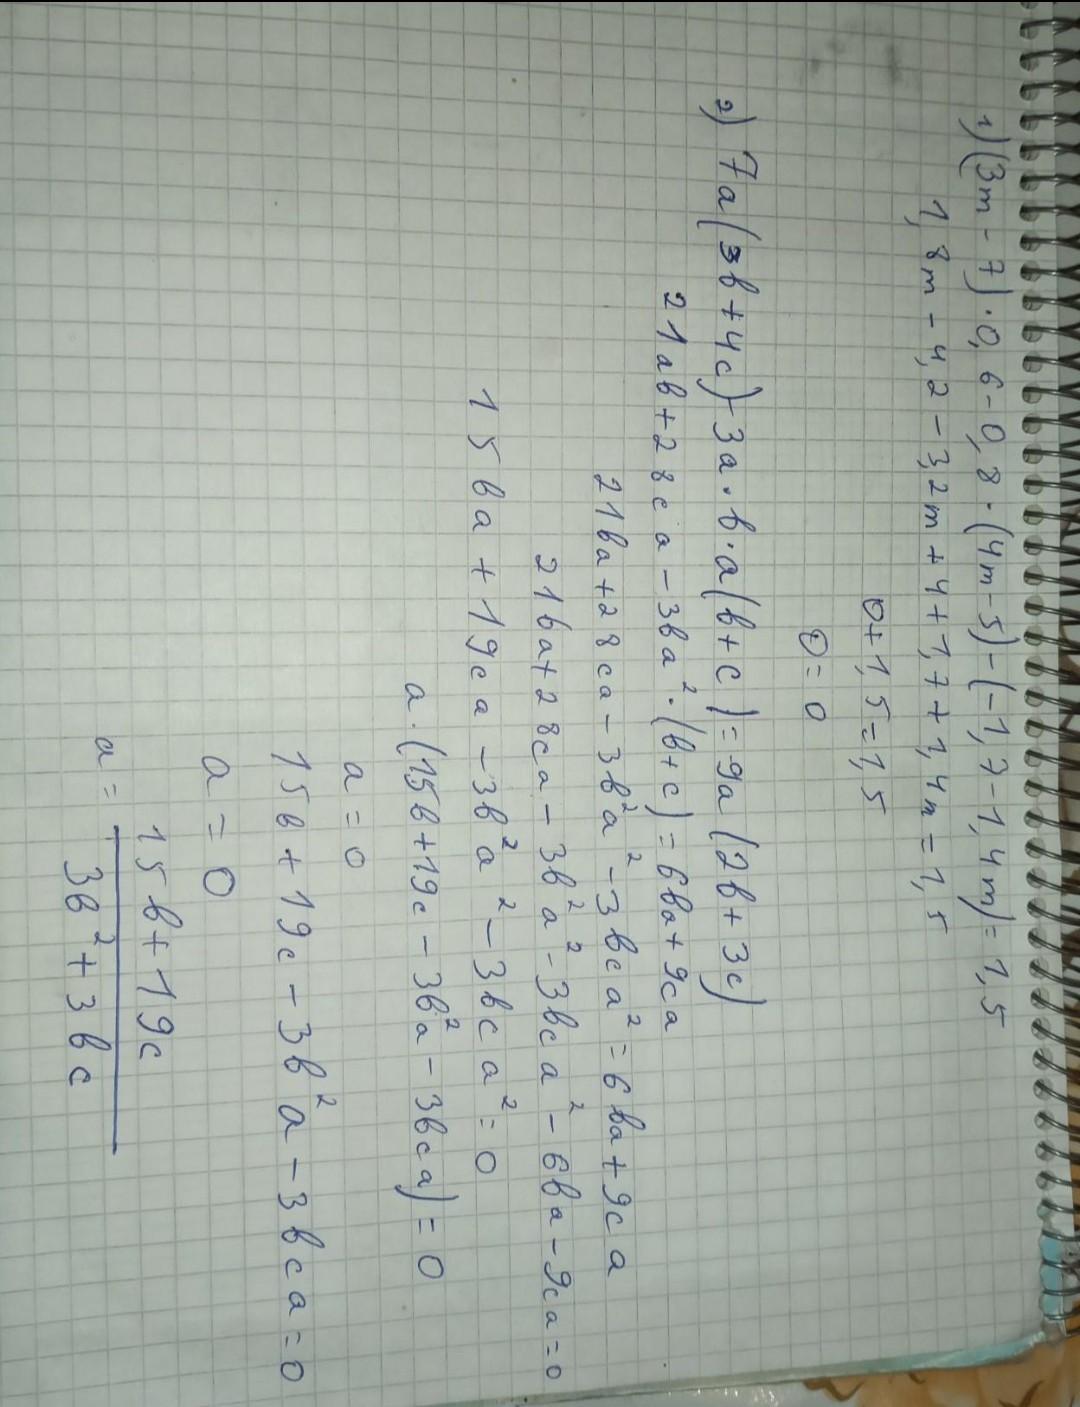 1) (3m - 7) · 0,6 - 0,8 · (4m - 5) - (-1,7 - 1,4m) = 1,5
1,8m - 4,2 - 3,2m + 4 + 1,7 + 1,4m = 1,5
0 + 1,5 = 1,5
0 = 0
2) 7a(3b + 4c) - 3a · b · a(b + c) = 9a(2b + 3c)
21ab + 28ca - 3ba² · (b + c) = 6ba + 9ca
21ba + 28ca - 3b²a² - 3bca² = 6ba + 9ca
21ba + 28ca - 3b²a² - 3bca² - 6ba - 9ca = 0
15ba + 19ca - 3b²a² - 3bca² = 0
a · (15b + 19c - 3b²a - 3bca) = 0
a = 0
15b + 19c - 3b²a - 3bca = 0
a = 0
a = (15b + 19c) / (3b² + 3bc)